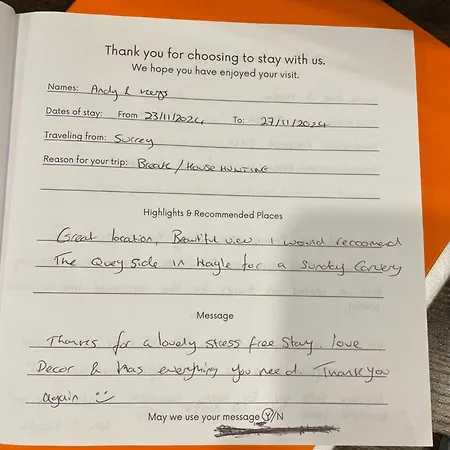 Thank you for choosing to stay with us.
We hope you have enjoyed your visit.
Names: Andy &
Dates of stay: From 23/11/2024 To: 27/11/2024
Traveling from: Surrey
Reason for your trip: Break / House Hunting
Highlights & Recommended Places
Great location, Beautiful view. I would reccomend
The Quey Side in Hayle for a Sunday Carvery
Message
Thanks for a lovely stress free stay. love
Decor & has everything you need. Thank you
again :)
May we use your message Y/N